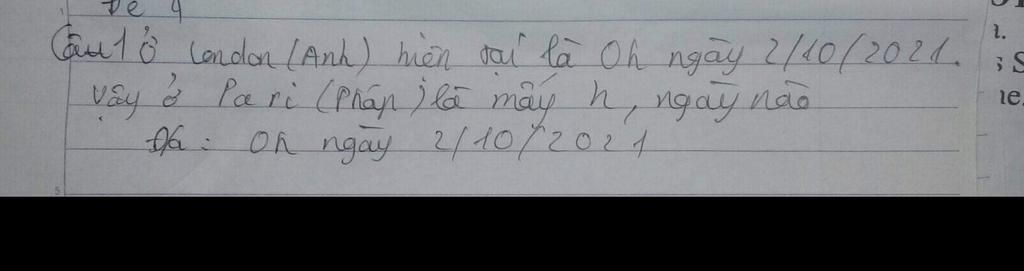 Đề 4
Câu 1 ở London (Anh) hiện tại là 0h ngày 2/10/2021.
Vậy ở Pari (Pháp) là mấy h, ngày nào
Đá: 0h ngày 2/10/2021